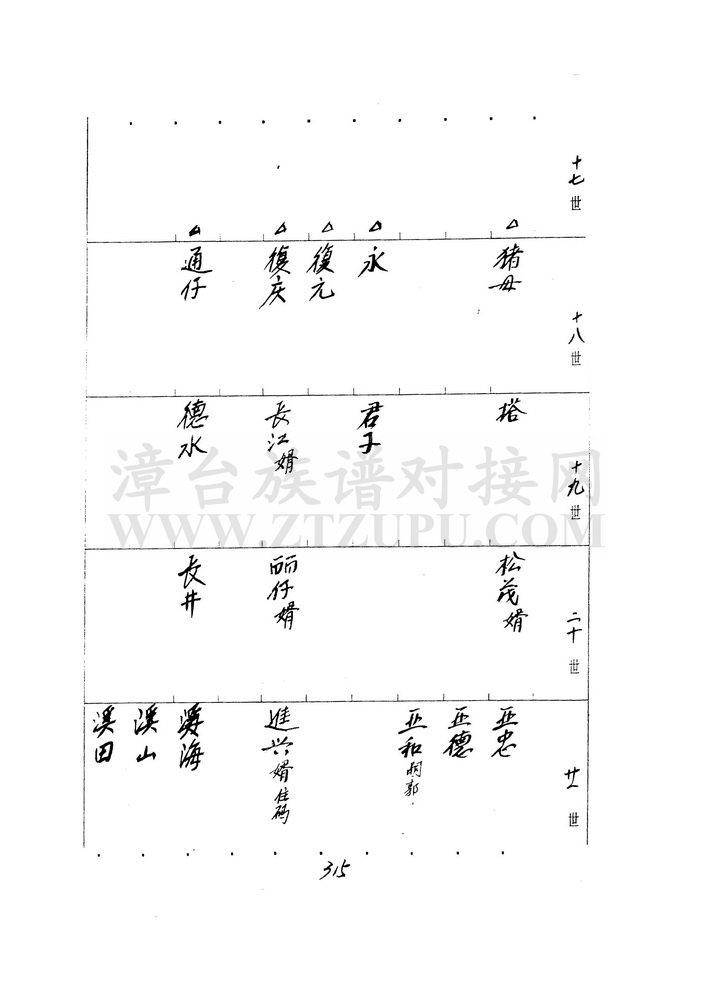 十七世
△ △ △ △ △
十八世
猪母
永
復元
復庆
通仔
十九世
塔
君子
長江婿
德水
二十世
松茂婿
丽仔婿
長井
廿一世
亚忠
亚德
亚和嗣郭
進兴婿住码
溪海
溪山
溪田
315
漳台族谱对接网
WWW.ZTZUPU.COM